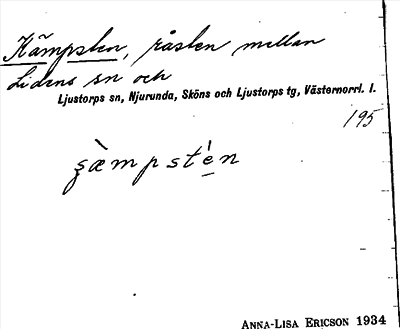 Kämpsten, råsten mellan
Lidens sn och
Ljustorps sn, Njurunda, Sköns och Ljustorps tg, Västernorrl. l.
195
ʂæ̀mpstén
ANNA-LISA ERICSON 1934